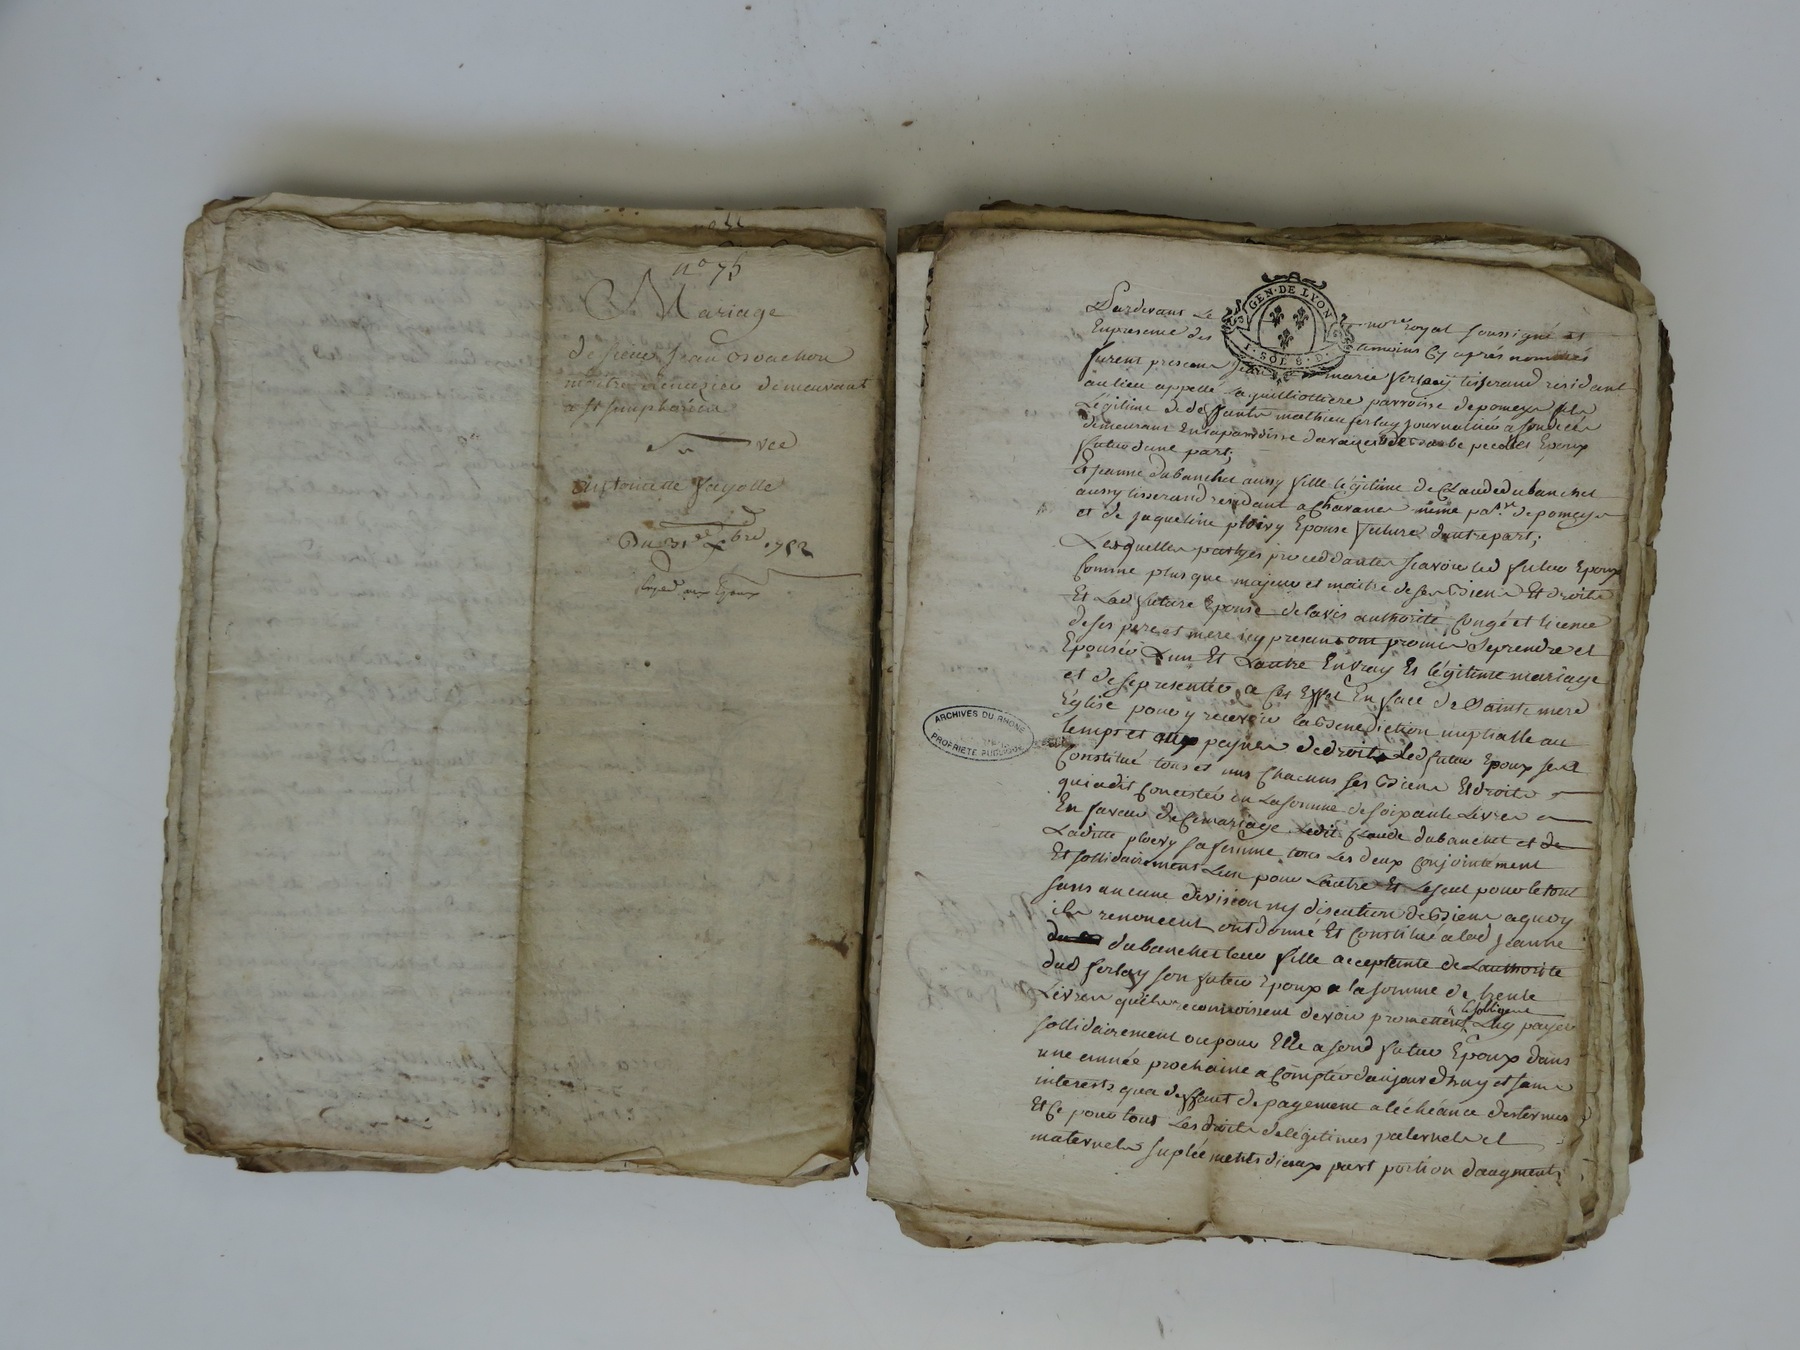 no 75
Mariage
de sieur Jean
maitre menusier demeurant
a st simphorien
avec
antoinette fayolle
Du 31e xbre 1782
Pardevant Le nore royal soussigné et
En presence des temoins Cy apres nommés
furent presens Jean marie ferlay tisserand residant
au lieu appellé La guilliottiere parroisse de pomeys fils
Légitime de deffunt mathieu ferlay journalier a son deces
demeurant En la parroisse et de Epoux
futur d'une part;
Et jeanne dubanchet aussy fille légitime de Claude dubanchet
aussy tisserand residant a Chavanes même parse de pomeys
et de jaqueline ploivy Epouse future d'autre part;
Lesquelles partyes proceddantes sçavoir led futur Epoux
Comme plus que majeur et maitre de ses Biens Et droits
Et Lad future Epouse de lavis authorité Congé et licence
de ses pere et mere icy presens ont promis se prendre et
Epouser Lun Et Lautre En vray Et légitime mariage
et de se presenter a Cet Effet En face de Sainte mere
Église pour y recevoir la Benediction nuptialle au
temps et aux peynes de droit Led futur Epoux sest
Constitué tous et uns Chacuns ses Biens Et droits
qui a dit Concister en La somme de soixante Livres
En faveur de Ce mariage Ledit Claude dubanchet et de
Laditte ploivy sa femme tous Les deux Conjointement
Et sollidairement Lun pour Lautre Et Le seul pour le tout
sans aucune division ny discution de Biens a quoy
ils renoncent ont donné Et Constitué a lad jeanne
dubanchet leur fille acceptante de Lauthorité
dud ferlay son futur Epoux la somme de trente
Livres quils reconnoissent devoir promettent & sobligent Luy payer
sollidairement ou pour Elle a sond futur Epoux dans
une année prochaine a Compter daujourdhuy et sans
interests qua deffaut de payement a léchéance du terme
Et Ce pour tous Les droits de légitimes paternels et
maternels suplements diceux part portion daugments
GEN · DE LYON
1 · SOL 8 · D
ARCHIVES DU RHONE
PROPRIETE PUBLIQUE